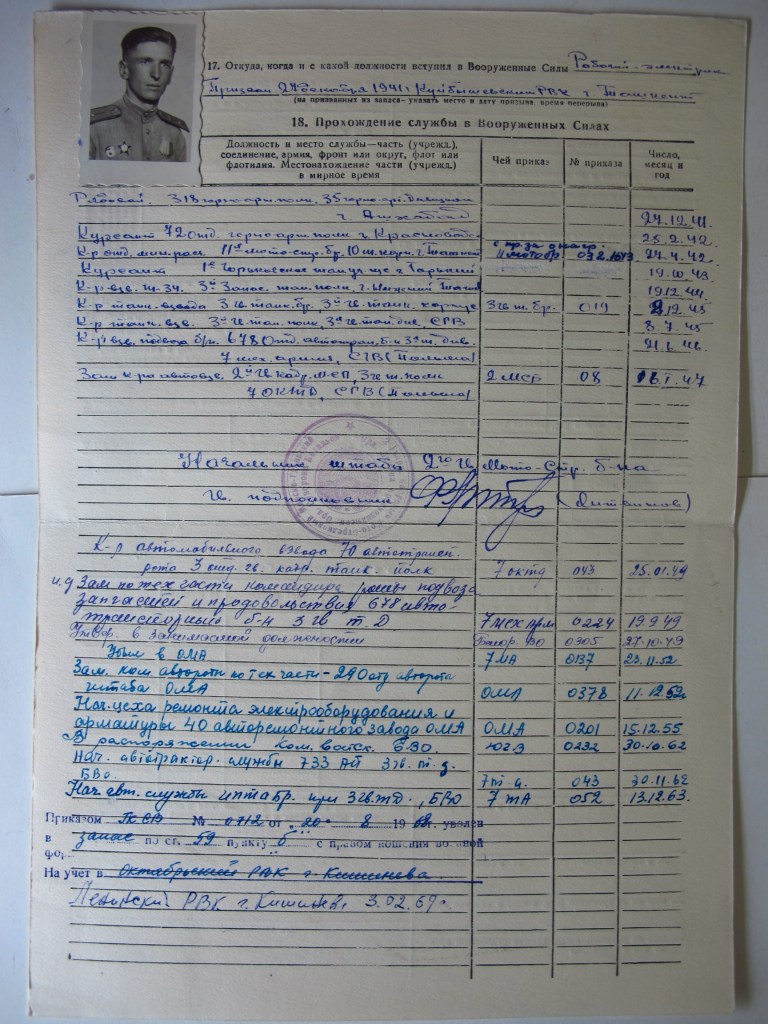 17. Откуда, когда и с какой должности вступил в Вооруженные Силы Рабочий-
Призван 27 декабря 1941 г Куйбышевским РВК г. Ташкент
(на призванных из запаса - указать место и дату призыва, время перерыва)
18. Прохождение службы в Вооруженных Силах
Должность и место службы—часть (учрежд.), соединение, армия, фронт или округ, флот или флотилия. Местонахождение части (учрежд.) в мирное время
Чей приказ
№ приказа
Число, месяц и год
Рядовой. 318 горно арт. полк, 35 горно арт. дивизион
г. Ашхабад 27.12.41.
Курсант 72 отд. горно арт полк г. Красноводск 25.2.42.
11 мотобр
К-р отд. мин. рас. 11ой мото-стр. бр. 10 т. корп. г. Ташкент 27.4.42.
Курсант 1е Горьковское тан. уч-ще г. Горький 19.10.43
К-р взв. т-34. 3й Запас. тан. полк, г. Нижний Тагил 19.12.44.
К-р танк. взвода 3 гв. танк. бр. 3го гв. танк. корпус 3 гв. т. бр. 019 2.45
К-р танк. взв. 3й гв. тан. полк, 3й гв. тан. див. СГВ 3.7.45
К-р взв. подвоза б/п. 678 отд. автотран. б-н 3й т. див. 21.6.46.
7 мех. армия, СГВ (Польша)
Зам. к-ра авто 2й гв. кадр. МСП, 3 гв. т. полк 2 МСБ 08 16.I.47
7 ОКТД, СГВ (Польша)
Начальник штаба 2го гв. Мото-Стр. б-на
гв. подполковник
К-р автомобильного взвода 70 автотрансп.
рота 3 отд. гв. кадр. танк. полк 7 октд 043 25.01.49
и.д Зам по тех части командира роты подвоза
запчастей и продовольствия 678 авто-
транспортный б-н 3 гв т. Д 7 мех арм 0224 19.9.49
Утвер. в занимаемой должности Белор. ВО 0305 27.10.49
Убыл в ОМА 7 МА 0137 23.11.52
Зам. ком. автороты по тех части - 290 отд авторота
штаба ОМА ОМА 0378 11.12.52г
Нач. цеха ремонта электрооборудования и
арматуры 40 авторемонтного завода ОМА ОМА 0201 15.12.55
В распоряжении Ком. войск. БВО. ЮГВ 0232 30.10.62
Нач. автотрактор. службы 733 АП 3 гв. т. д.
БВО. 7 т. а. 043 30.11.62
Нач авт. службы штаба бр. при 3 гв. тд., БВО 7 ТА 052 13.12.63.
Приказом № 0712 от „20“ 8 1968г. уволен
в запас по ст. 59 пункту „б“ с правом ношения военной
фор.
На учет в Октябрьский РВК г. Кишинева.
Ленинский РВК г. Кишинев 3.02.69г.